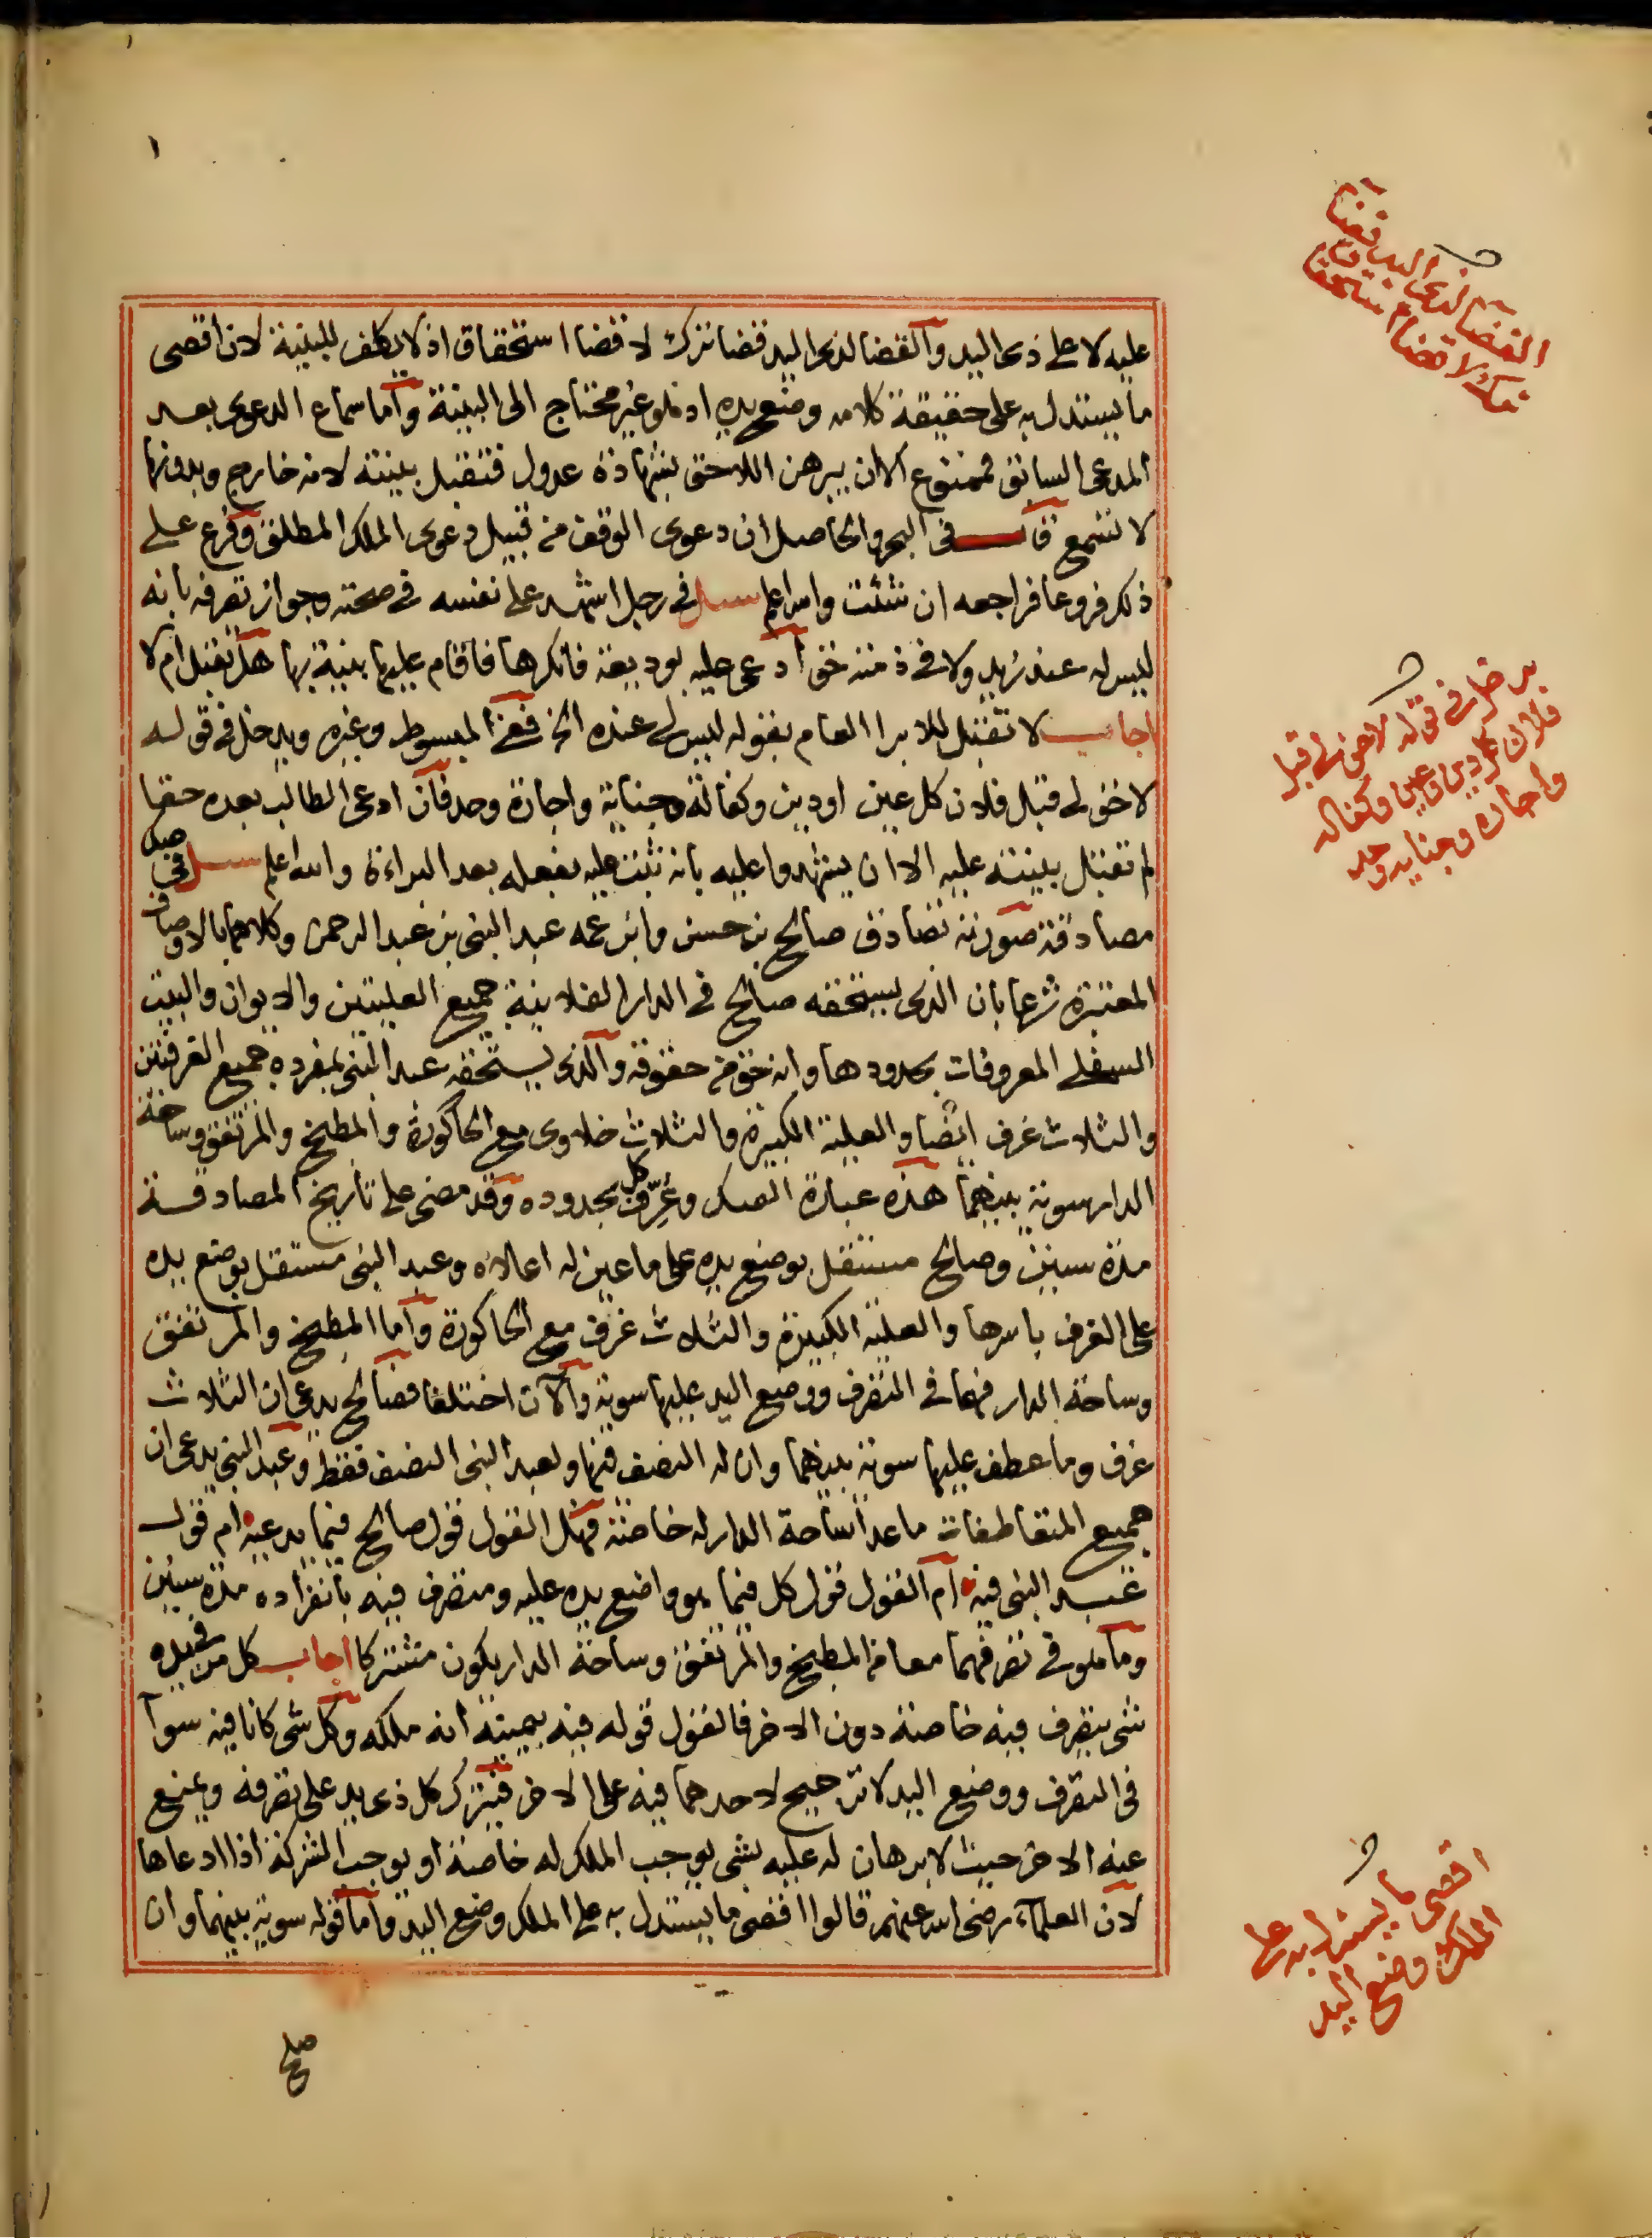 عليه لا على ذى اليد والقضا لذى اليد قضا ترك لا قضا استحقاق اذ لا يكلف للبينة لان اقصى
ما يستدل به على حقيقة كلامه وضع يده اذ هو غير محتاج الى البينة واما سماع الدعوى بعد
المدعى السابق فممنوع الا ان يبرهن اللاحق بشهادة عدول فتقبل بينته لانه خارج وبدونها
لا تسمع قال فى البحر والحاصل ان دعوى الوقف من قبيل دعوى الملك المطلق وفرع على
ذلك فروعا فراجعه ان شئت والله اعلم سئل فى رجل اشهد على نفسه فى صحته وجواز تصرفه بانه
ليس له عند زيد ولا فى ذمته حق ادعى عليه بوديعة فانكرها فاقام عليها بينة بها هل تقبل ام لا
اجاب لا تقبل للابرا العام بقوله ليس لى عنده الخ ففى المبسوط وغيره ويدخل فى قوله
لا حق لى قبل فلان كل عين او دين وكفالة وجناية واجارة وحد فان ادعى الطالب بعده حقا
لم تقبل بينته عليه الا ان يشهدوا عليه بانه ثبت عليه بفعله بعد البراءة والله اعلم سئل فى صك
مصادقة صورته تصادق صالح بن حسن وابن عمه عبد النبى بن عبد الرحمن وكلاهما بالاوصاف
المعتبرة شرعا بان الذى يستحقه صالح فى الدار الفلانية جميع العليتين والايوان والبيت
السفلى المعروفات بحدودها وانه حق من حقوقه والذى يستحقه عبد النبى بمفرده جميع الغرفتين
والثلاث غرف ايضا والعلية الكبيرة والثلاث خلاوى مع الحاكورة والمطبخ والمرتفق وساحة
الدار سوية بينهما هذه عبارة الصك وعُرِّف كل بحدوده وقد مضى على تاريخ المصادقة
مدة سنين وصالح مستقل بوضع يده على ما عين له اعلاه وعبد النبى مستقل بوضع يده
على الغرف باسرها والعلية الكبيرة والثلاث غرف مع الحاكورة واما المطبخ والمرتفق
وساحة الدار فهما فى التصرف ووضع اليد عليها سوية والآن اختلفا فصالح يدعى ان الثلاث
غرف وما عطف عليها سوية بينهما وان له النصف فيها ولعبد النبى النصف فقط وعبد النبى يدعى ان
جميع المتعاطفات ما عدا ساحة الدار له خاصة فهل القول قول صالح فيما يدعيه ام قول
عبد النبى فيه ام القول قول كل فيما هو واضع يده عليه ومتصرف فيه بانفراده مدة سنين
وما هو فى تصرفهما معا من المطبخ والمرتفق وساحة الدار يكون مشتركا اجاب كل من فى يده
شى يتصرف فيه خاصة دون الاخر فالقول قوله فيه بيمينه انه ملكه وكل شى كانا فيه سوآ
فى التصرف ووضع اليد لا ترجيح لاحدهما فيه على الاخر فيترك كل ذى يد على تصرفه ويمنع
عنه الاخر حيث لا برهان له عليه بشى يوجب الملك له خاصة او يوجب الشركة اذا ادعاها
لان العلمآء رضى الله عنهم قالوا اقصى ما يستدل به على الملك وضع اليد واما قوله سوية بينهما وان
صح
القضا لذى اليد قضا
ترك لا قضا استحقاق
يدخل فى قوله لا حق لى قبل
فلان كل دين وعين وكفالة
واجارة وجناية وحد
اقصى ما يستدل به على
الملك وضع اليد